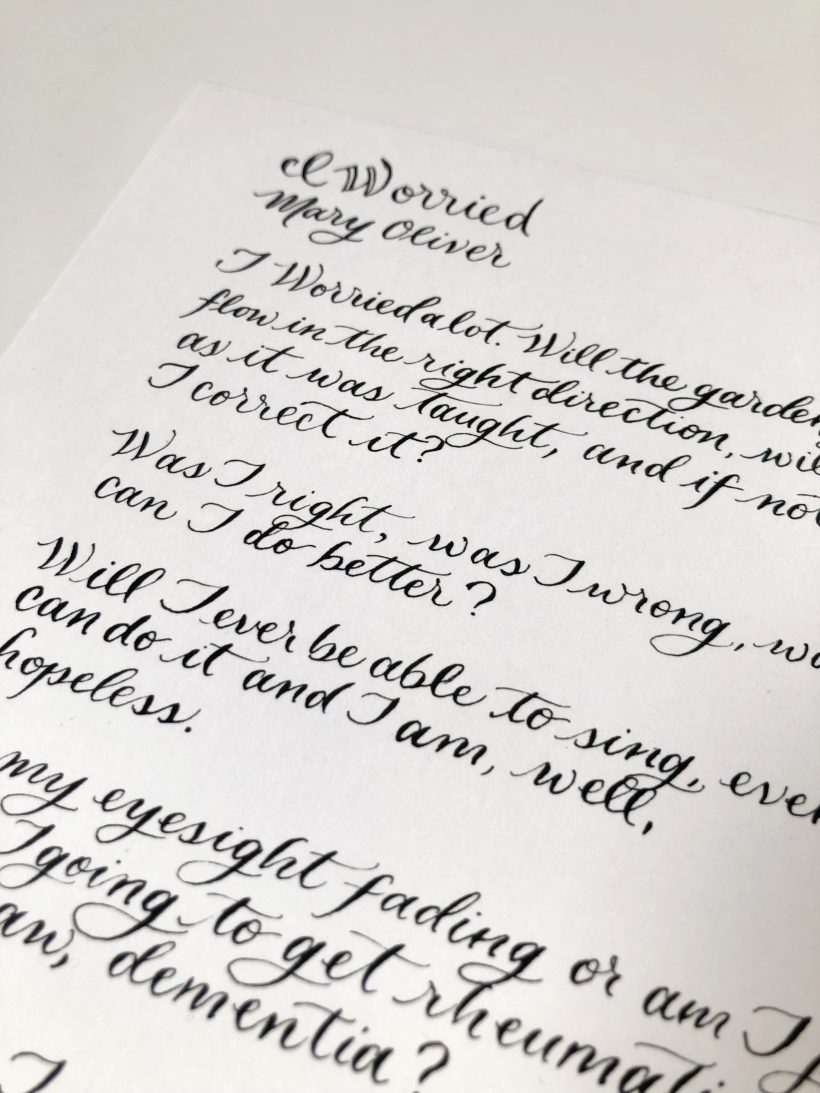 I Worried
Mary Oliver
I Worried a lot. Will the garden
flow in the right direction, will
as it was taught, and if not
I correct it?
Was I right, was I wrong,
can I do better?
Will I ever be able to sing, even
can do it and I am, well,
hopeless.
my eyesight fading or am I
I going to get
dementia?
I